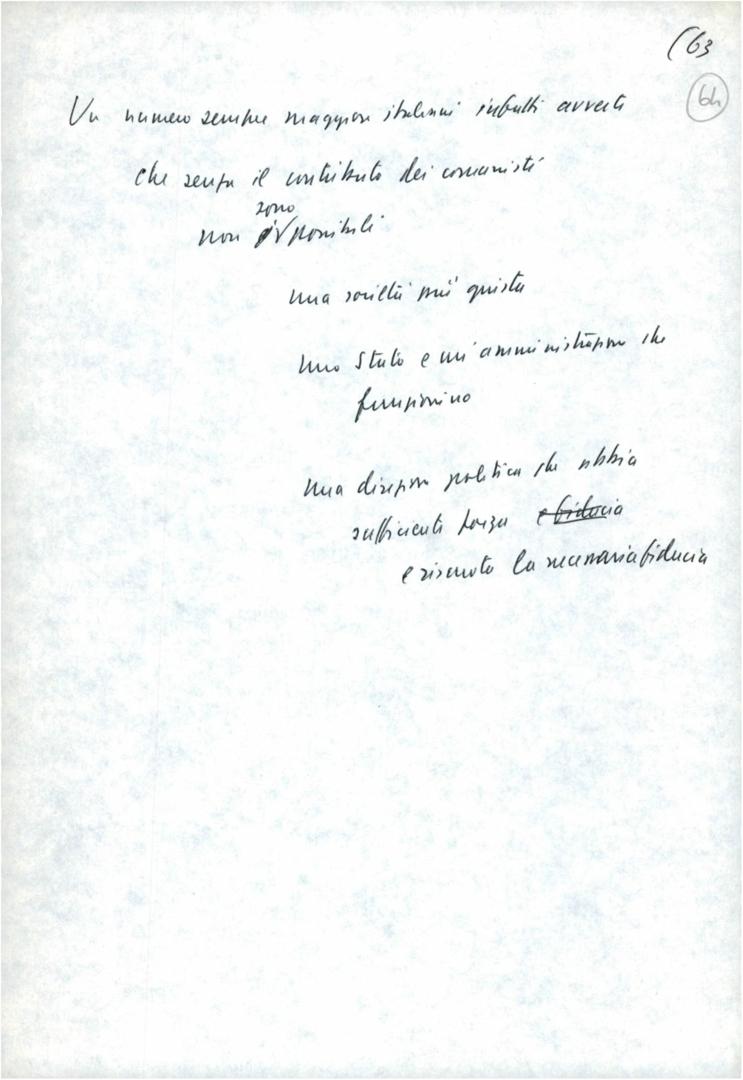 (63
64
Un numero sempre maggiore italiani infatti avverte
che senza il contributo dei comunisti
sono
non possibili
una società più giusta
uno Stato e un'amministrazione che
funzionino
una direzione politica che abbia
sufficiente forza e fiducia
e riscuota la necessaria fiducia